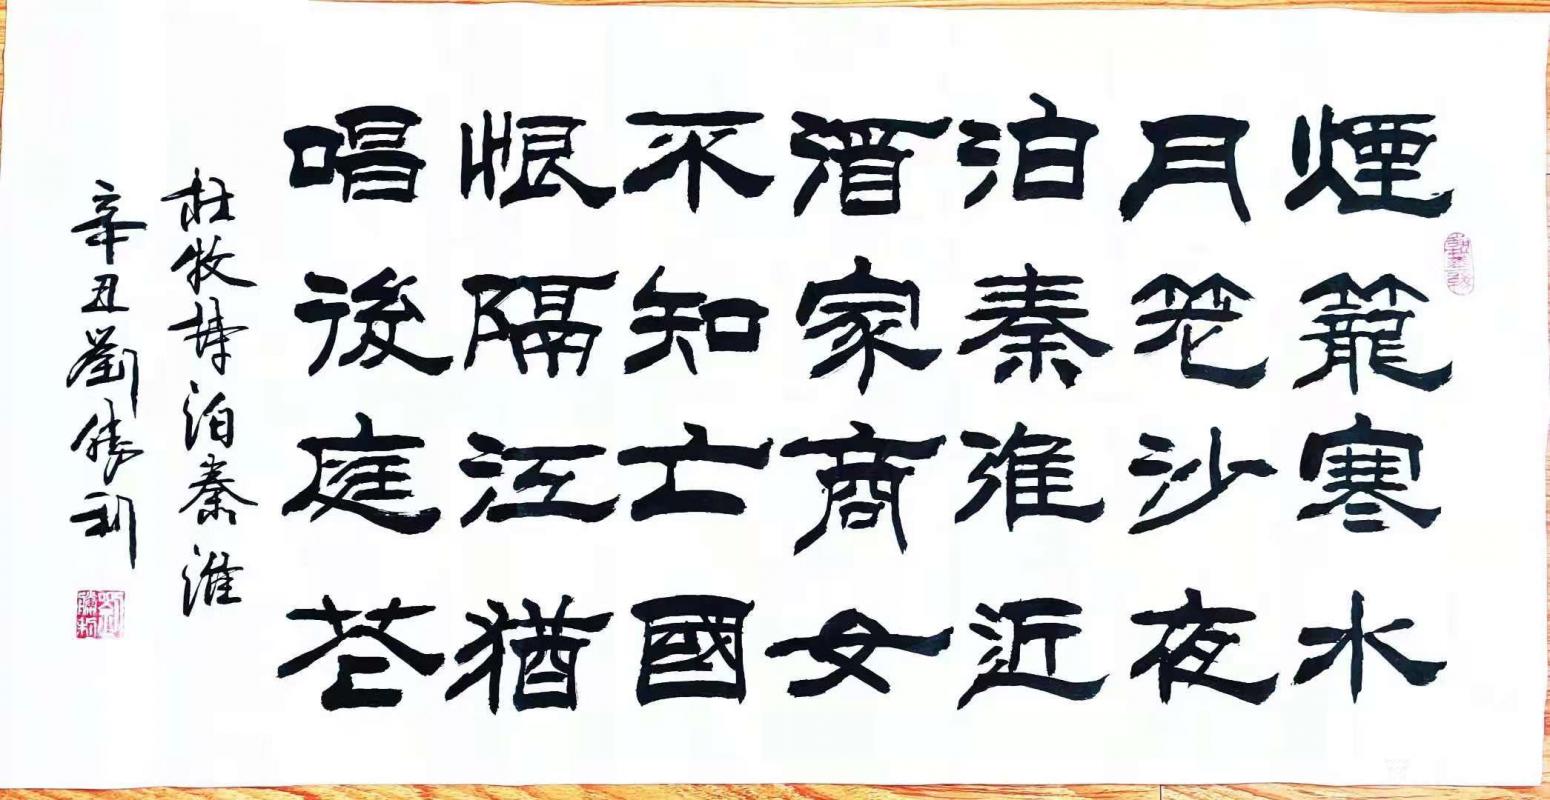 煙籠寒水
月笼沙夜
泊秦淮近
酒家商女
不知亡國
恨隔江猶
唱後庭花
杜牧詩泊秦淮
辛丑劉勝利